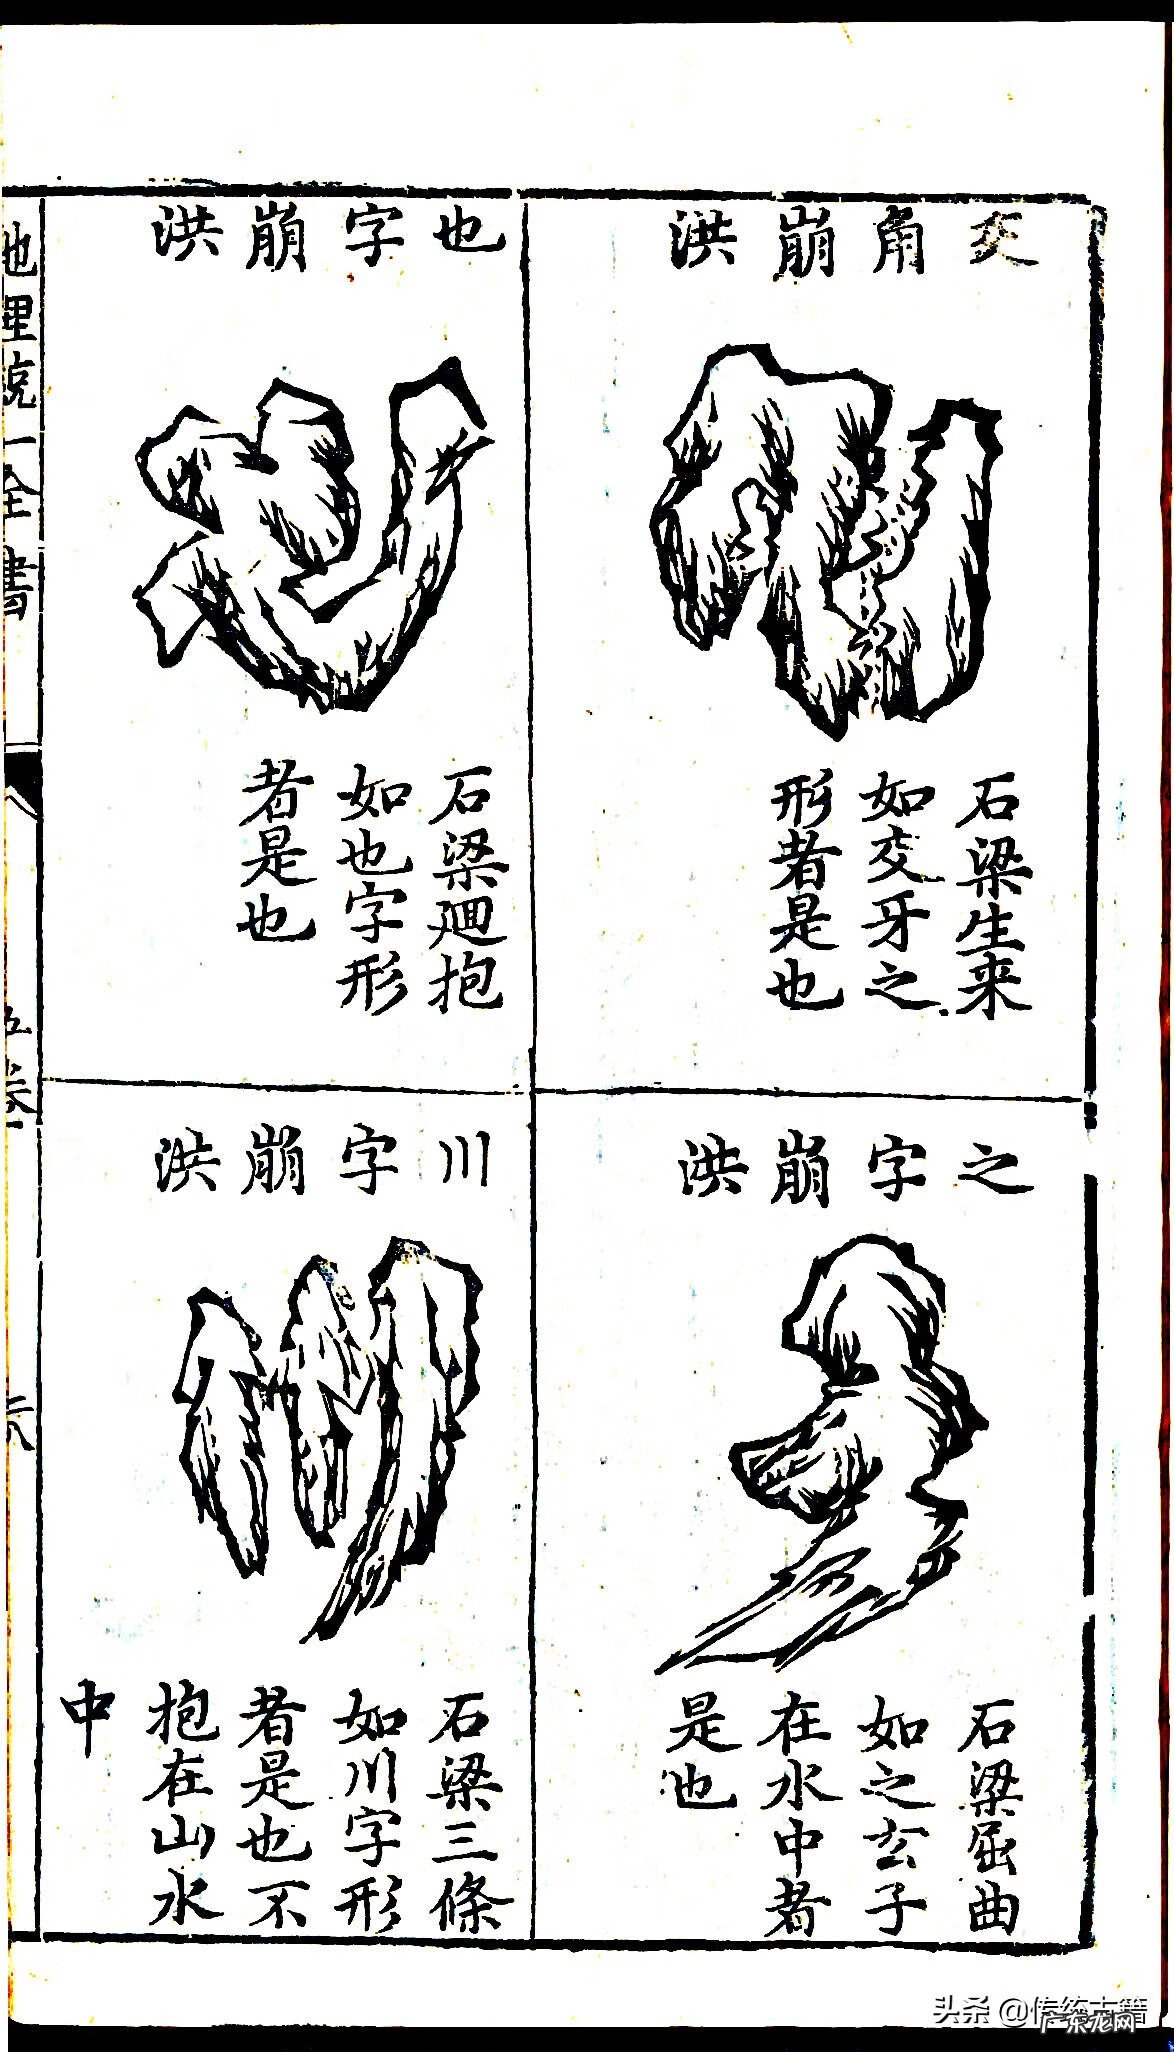 交角崩洪
石梁生来
如交牙之
形者是也
也字崩洪
石梁廻抱
如也字形
者是也
之字崩洪
石梁屈曲
如之玄子
在水中者
是也
川字崩洪
石梁三條
如川字形
者是也不
抱在山水
中
地理統一全書
五卷
头条 @传统古籍
广东龙网